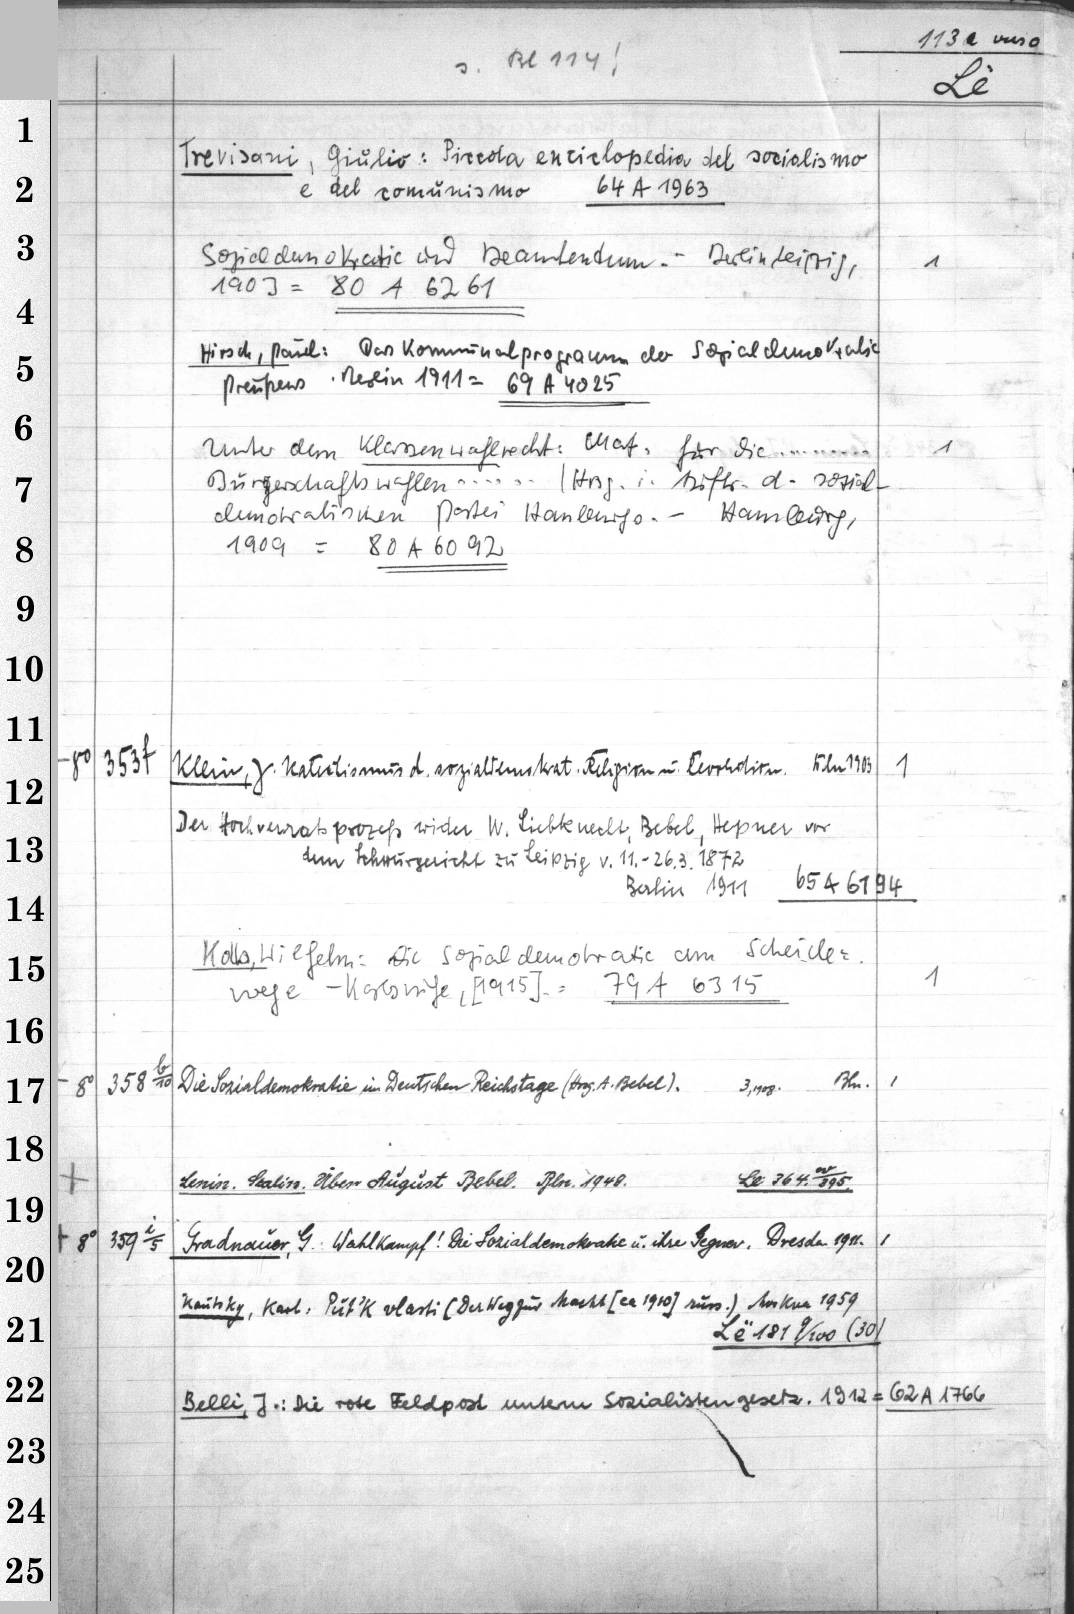 113a verso
s. Bl 114!
Lë
1
Trevisani, Giulio: Piccola enciclopedia del socialismo
2
e del comunismo 64 A 1963
3
Sozialdemokratie und Beamtentum. - Berlin Leipzig, 1
1903 = 80 A 6261
4
5
Hirsch, Paul: Das Kommunalprogramm der Sozialdemokratie
Preußens. Berlin 1911 = 69 A 4025
6
Unter dem Klassenwahlrecht: Mat. für die ......... 1
7
Bürgerschaftswahlen ...... / Hrsg. i. Auftr. d. sozial-
demokratischen Partei Hamburgs. - Hamburg,
8
1909 = 80 A 6092
9
10
11
-8° 353f Klein, J. Katechismus d. sozialdemokrat. Religion u. Revolution. Köln 1903 1
12
Der Hochverratsprozeß wider W. Liebknecht, Bebel, Hepner vor
13
dem Schwurgericht zu Leipzig v. 11.-26.3.1872
Berlin 1911 65 A 6194
14
Kolb, Wilhelm: Die Sozialdemokratie am Scheide=
15
wege - Karlsruhe, [1915]. = 79 A 6315 1
16
17
- 8° 358 b/10 Die Sozialdemokratie im Deutschen Reichstage (Hrsg. A. Bebel). 3, 1908. Bln. 1
18
+ Lenin. Stalin. Über August Bebel. Bln. 1948. Le 364 w/895.
19
+ 8° 359 i/5 Gradnauer, G. Wahlkampf! Die Sozialdemokratie u. ihre Gegner. Dresden 1911. 1
20
Kautsky, Karl: Put' K vlasti (Der Weg zur Macht [ca 1910] russ.) Moskva 1959
21
Lë 181 9/100 (30)
22
Belli, J.: Die rote Feldpost unterm Sozialistengesetz. 1912 = 62 A 1766
23
24
25